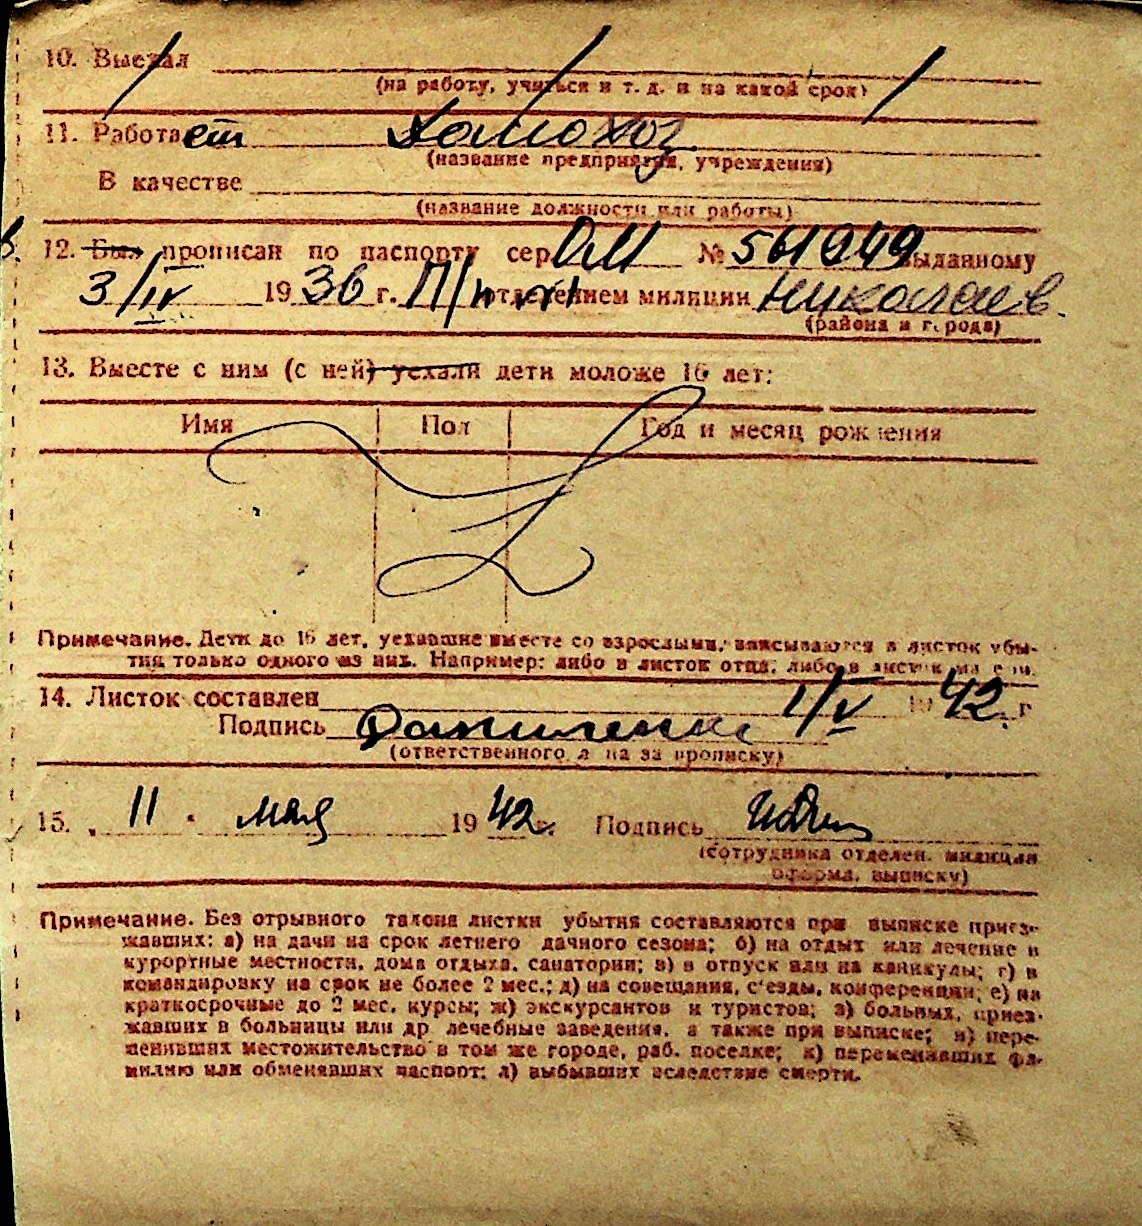 10. Выехал
(на работу, учиться и т. д. и на какой срок)
11. Работает
(название предприятия, учреждения)
В качестве
(название должности или работы)
12. Был прописан по паспорту сер. ОМ № выданному
3/IV 1936 г. отделением милиции Николаев.
(района и города)
13. Вместе с ним (с ней) уехали дети моложе 16 лет:
Имя Пол Год и месяц рождения
Примечание. Дети до 16 лет, уехавшие вместе со взрослыми, вписываются в листок убы-
тия только одного из них. Например: либо в листок отца, либо в листок матери.
14. Листок составлен 1/V 1942 г
Подпись Даниленко
(ответственного лица за прописку)
15. „ 11 " мая 1942 г. Подпись
(сотрудника отделен. милиции
оформ. выписку)
Примечание. Без отрывного талона листки убытия составляются при выписке приез-
жавших: а) на дачи на срок летнего дачного сезона; б) на отдых или лечение в
курортные местности, дома отдыха, санатории; в) в отпуск или на каникулы; г) в
командировку на срок не более 2 мес.; д) на совещания, с'езды, конференции; е) на
краткосрочные до 2 мес. курсы; ж) экскурсантов и туристов; з) больных, приез-
жавших в больницы или др. лечебные заведения, а также при выписке; и) пере-
менивших местожительство в том же городе, раб. поселке; к) переменивших фа-
милию или обменявших паспорт; л) выбывших вследствие смерти.